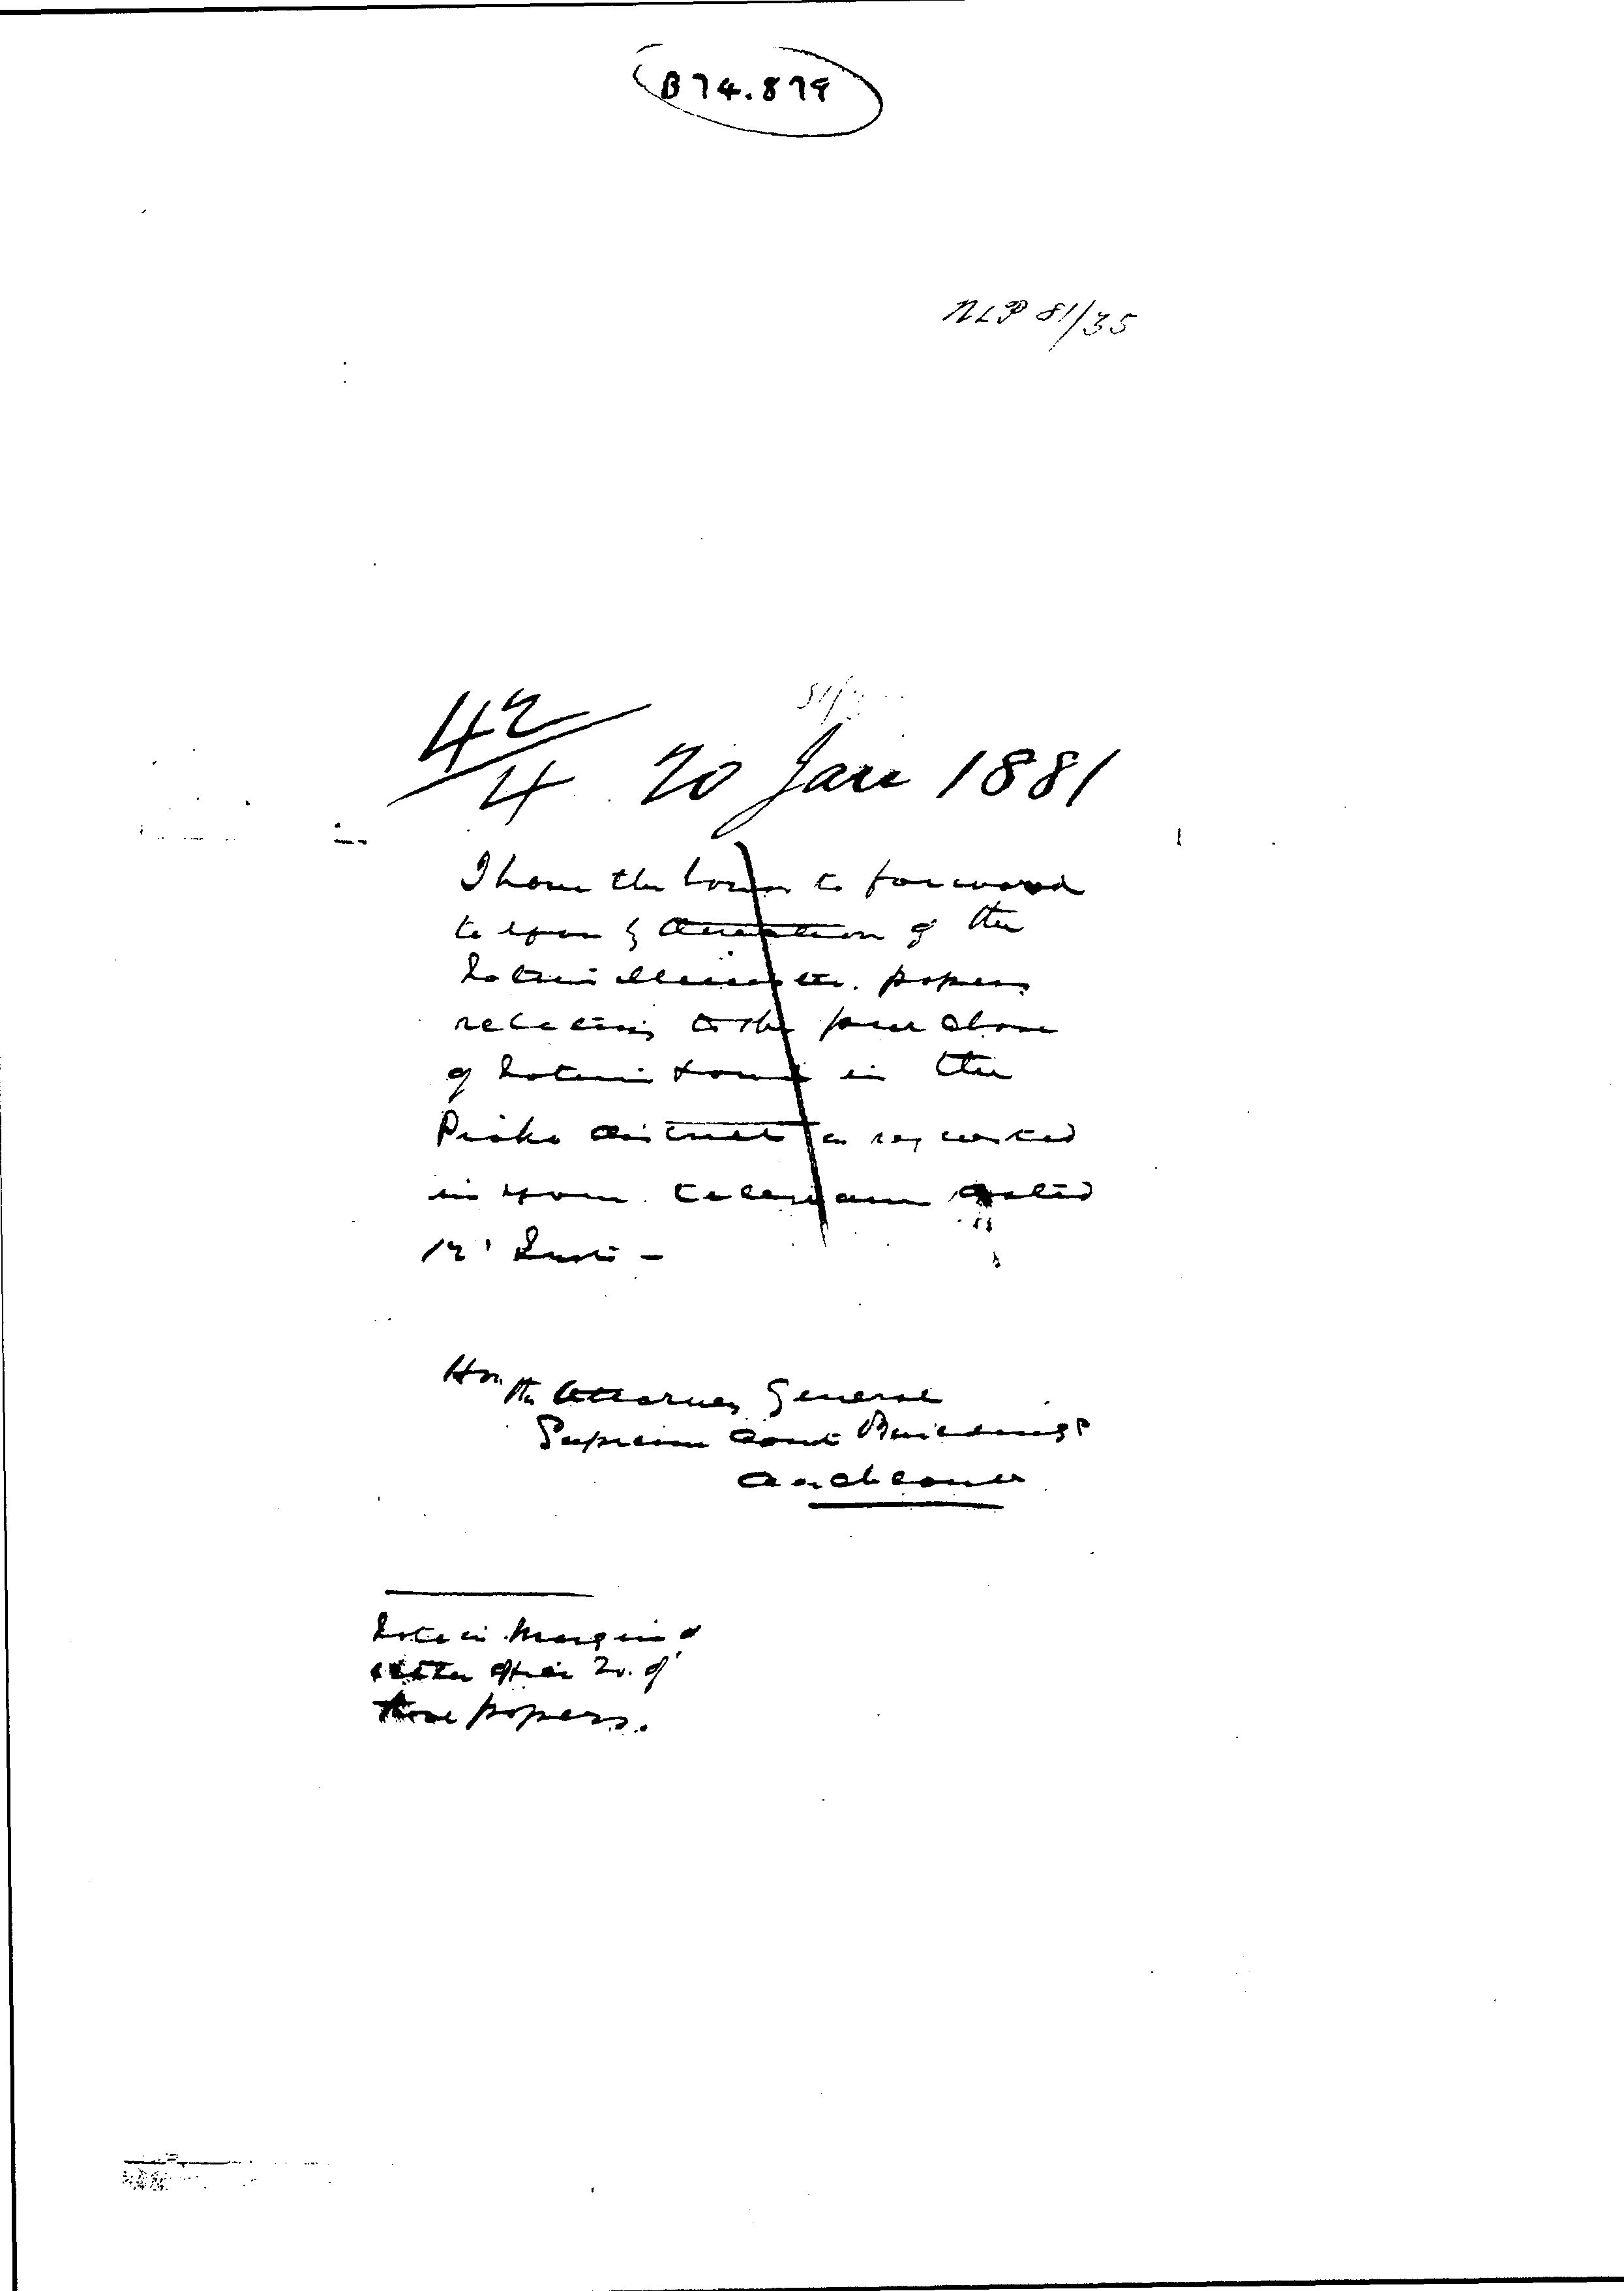 B74.879
NLP 81/35
42/4 20 Jan 1881
I have the honor to forward
to you by direction of the
Native Minister. papers
relating to the purchase
of Native Land in the
Piako district as requested
in your telegram dated
12' Inst -
Hon. the Attorney General
Supreme Court Buildings
Auckland
Note in Margin of
letter after No. of
these papers.